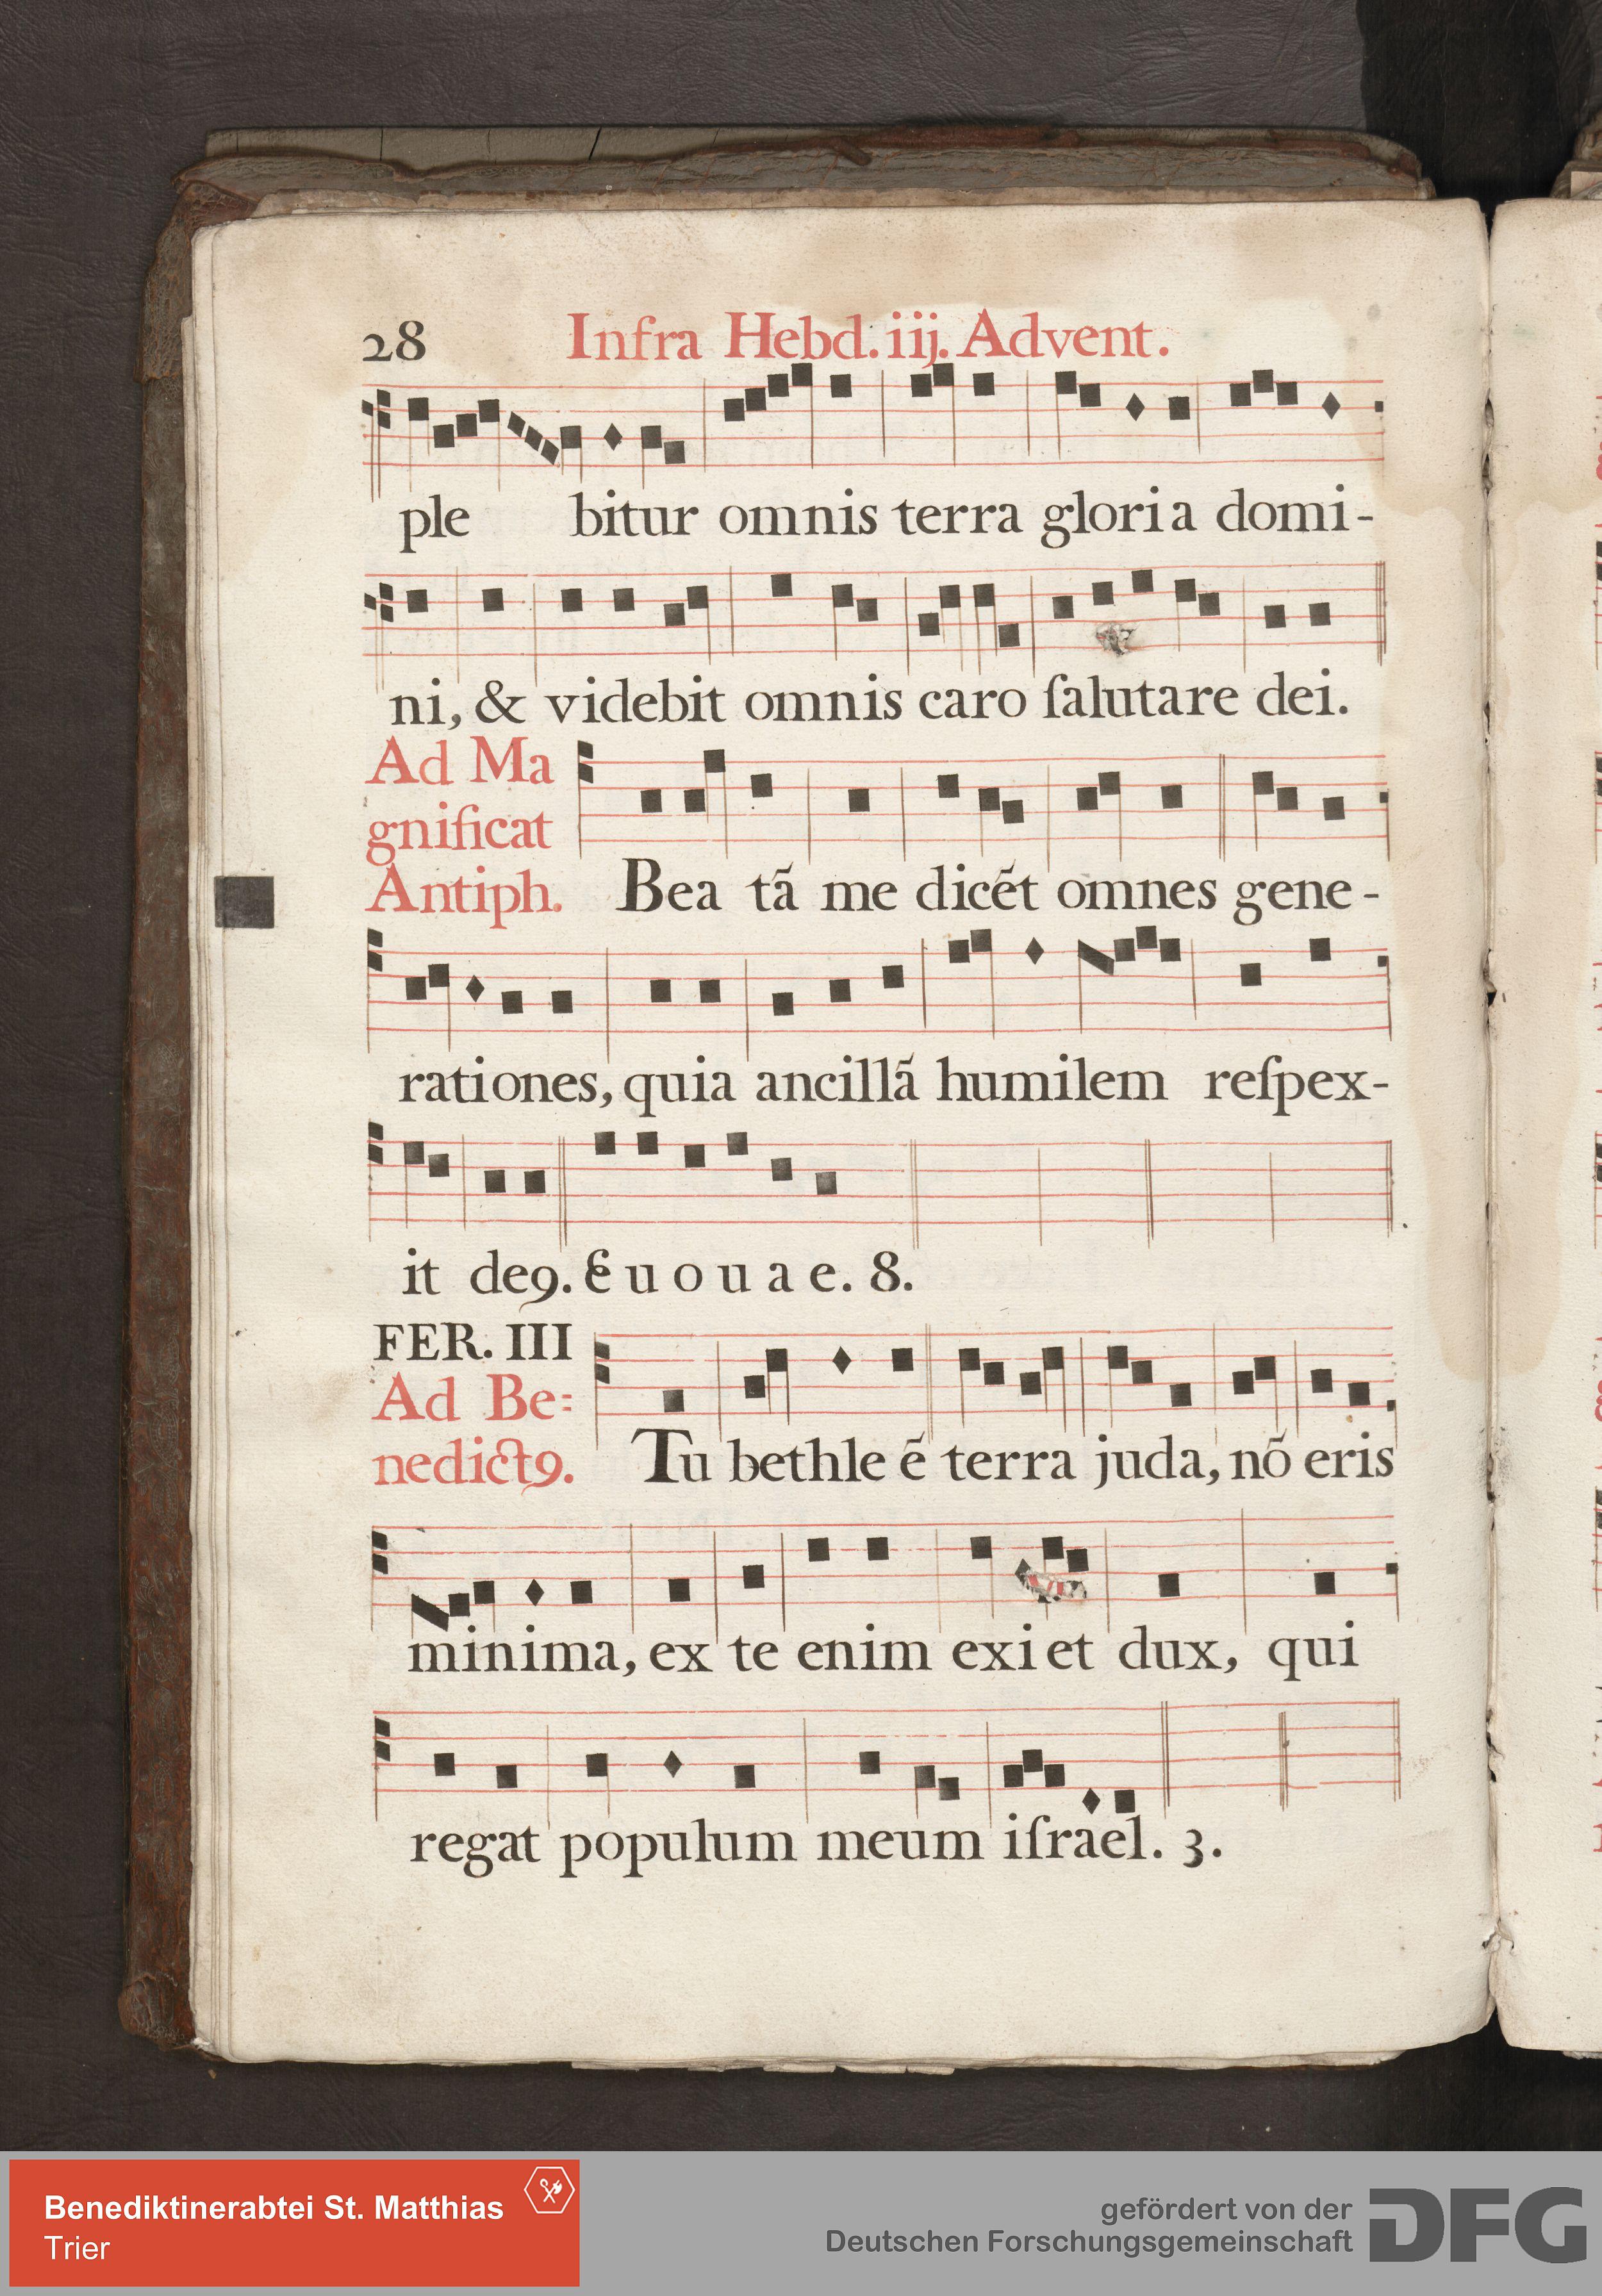 28 Infra Hebd. iij. Advent.
ple bitur omnis terra gloria domi-
ni, & videbit omnis caro ſalutare dei.
Ad Ma
gnificat
Antiph. Bea tã me dicẽt omnes gene-
rationes, quia ancillã humilem reſpex-
it deꝰ. E u o u a e. 8.
FER. III
Ad Be=
nedictꝰ. Tu bethle ẽ terra juda, nõ eris
minima, ex te enim exiet dux, qui
regat populum meum iſrael. 3.
Benediktinerabtei St. Matthias
Trier
gefördert von der
Deutschen Forschungsgemeinschaft
DFG